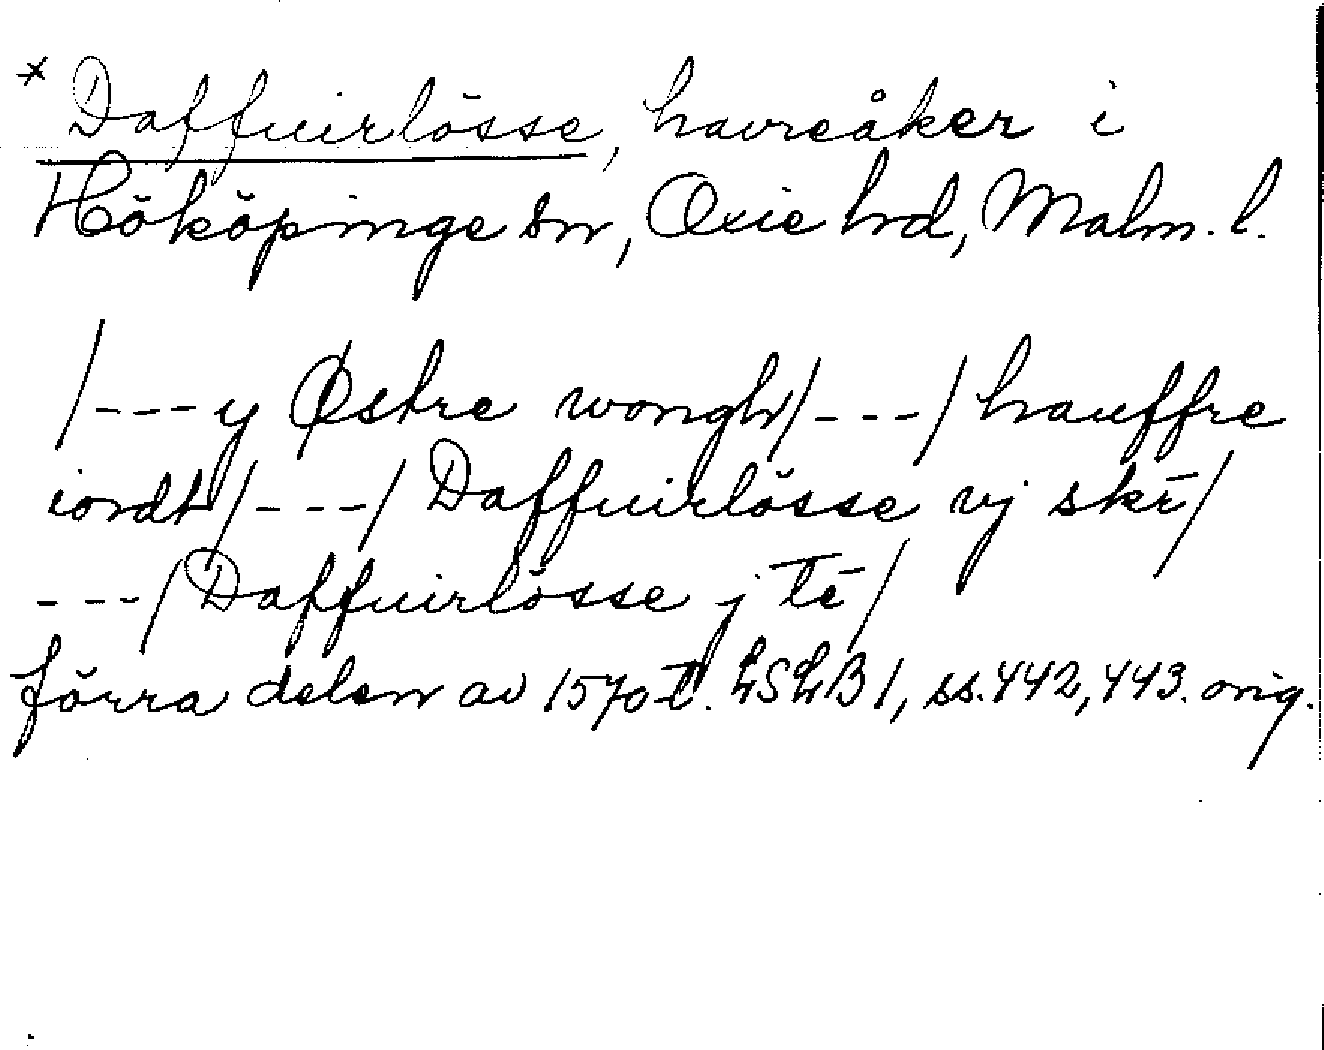 * Daffuirlösse, havreåker i
Hököpinge sn, Oxie hd, Malm. l.
/---y Østre wongh/---/ hauffre
iordt/---/ Daffuirlösse vj skr̄/
---/ Daffuirlösse j te̅/
förra delen av 1570-t. LSLB 1, ss. 442, 443. orig.